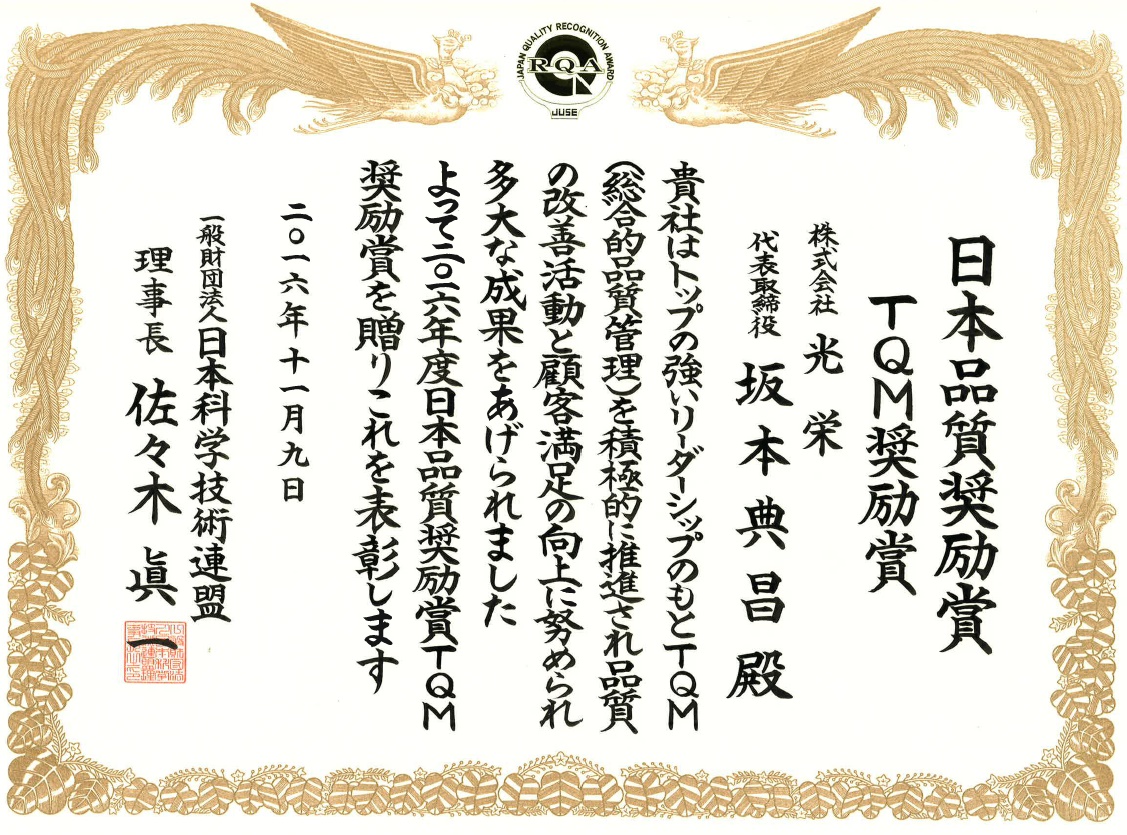 JAPAN QUALITY RECOGNITION AWARD
RQA
JUSE
日本品質奨励賞
TQM奨励賞
株式会社 光栄
代表取締役 坂本典昌殿
貴社はトップの強いリーダーシップのもとTQM
(総合的品質管理)を積極的に推進され品質
の改善活動と顧客満足の向上に努められ
多大な成果をあげられました
よって二〇一六年度日本品質奨励賞TQM
奨励賞を贈りこれを表彰します
二〇一六年十一月九日
一般財団法人日本科学技術連盟
理事長 佐々木眞一